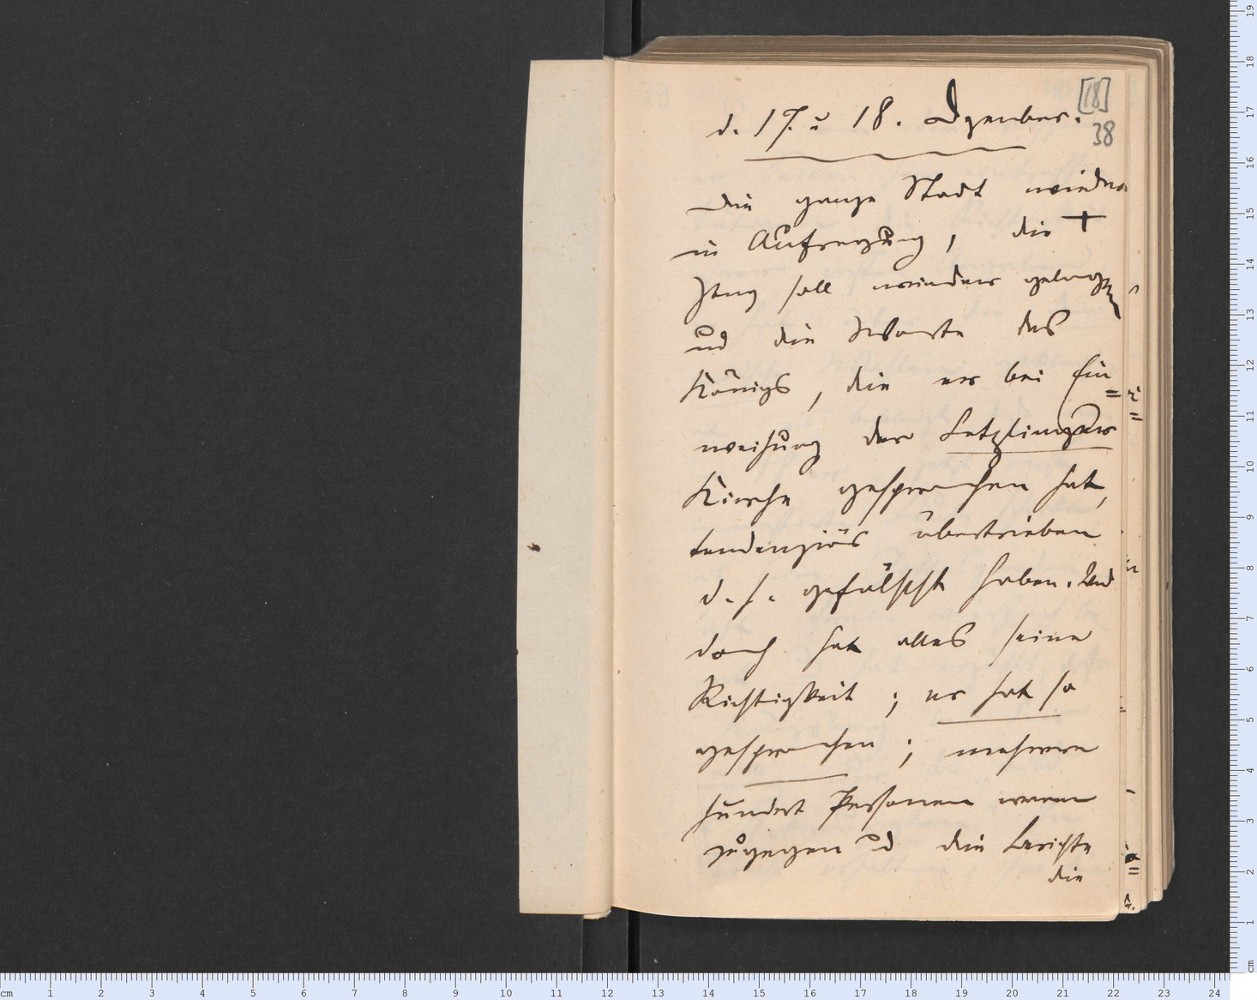 [18]
38
d. 17. u 18. Dzember.
Die ganze Stadt wieder
in Aufregung, die +
Ztng soll wieder gelogen
und die Worte des
Königs, die er bei Ein=
weihung der Letzlinger
Kirche gesprochen hat,
tendenziös übertrieben
d. h. gefälscht haben. Und
doch hat alles seine
Richtigkeit; er hat so
gesprochen; mehrere
hundert Personen waren
zugegen und die Berichte
die